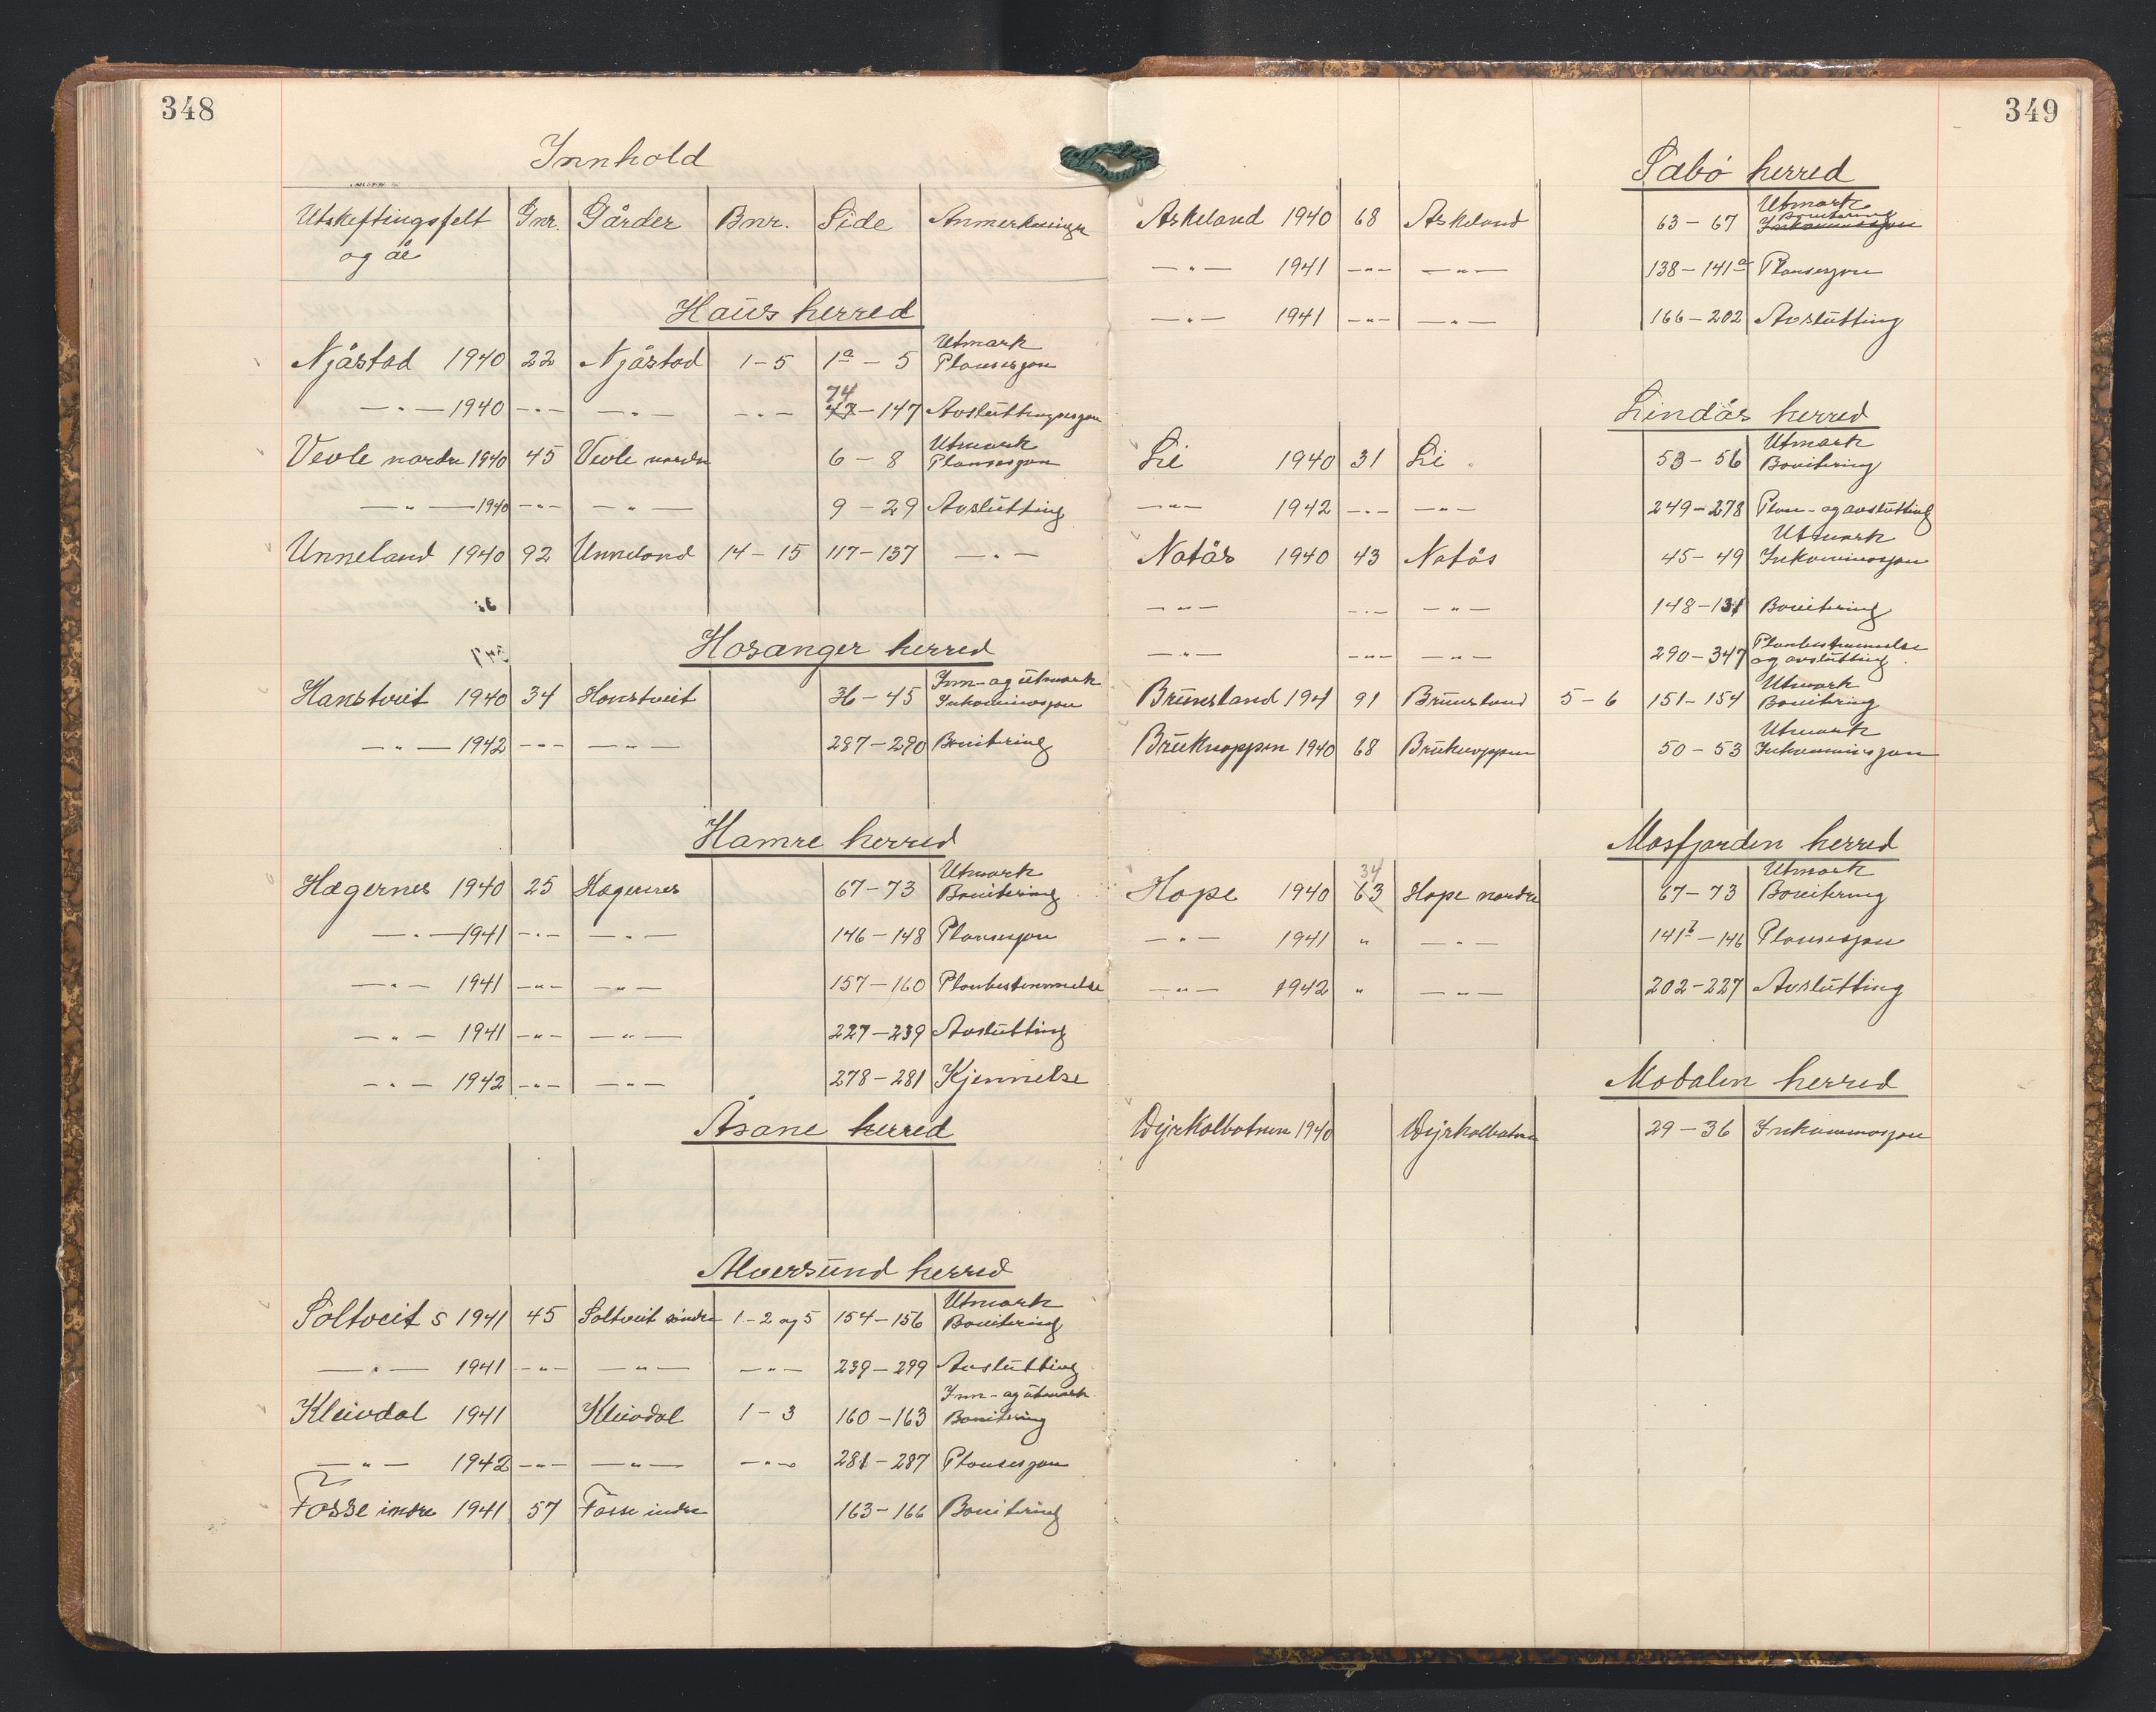 348
Innhold
Utskeftingsfelt og år | Gnr. | Gårder | Bnr. | Side | Anmerkninger
Haus herred
Njåstad 1940 | 22 | Njåstad | 1 - 5 | 1a - 5 | Utmark Plansesjon
— " — 1940 | — " — | — " — | — " — | 74 47 - 147 | Avslutningssesjon
Vevle nordre 1940 | 45 | Vevle nordre | | 6 - 8 | Utmark Plansesjon
— " — 1940 | — " — | — " — | | 9 - 29 | Avslutting
Unneland 1940 | 92 | Unneland | 14 - 15 | 117 - 137 | — " —
Hosanger herred
Hanstveit 1940 | 34 | Hanstveit | | 36 - 45 | Inn- og utmark Inkaminasjon
— " — 1942 | — " — | — " — | | 287 - 290 | Bonitering
Hamre herred
Hægernes 1940 | 25 | Hægernes | | 67 - 73 | Utmark Bonitering
— " — 1941 | — " — | — " — | | 146 - 148 | Plansesjon
— " — 1941 | — " — | — " — | | 157 - 160 | Planbestemmelse
— " — 1941 | — " — | — " — | | 227 - 239 | Avslutting
— " — 1942 | — " — | — " — | | 278 - 281 | Kjennelse
Åsane herred
Alversund herred
Soltveit s 1941 | 45 | Soltveit søndre | 1 - 2 og 5 | 154 - 156 | Utmark Bonitering
— " — 1941 | — " — | — " — | — " — | 239 - 299 | Avslutting
Kleivdal 1941 | | Kleivdal | 1 - 3 | 160 - 163 | Inn- og utmark Bonitering
— " — 1942 | — " — | — " — | — " — | 281 - 287 | Plansesjon
Fosse indre 1941 | 57 | Fosse indre | | 163 - 166 | Bonitering
349
Sæbø herred
Askeland 1940 | 68 | Askeland | | 63 - 67 | Utmark Bonitering Inkaminasjon
— " — 1941 | — " — | — " — | | 138 - 141a | Plansesjon
— " — 1941 | — " — | — " — | | 166 - 202 | Avslutting
Lindås herred
Li 1940 | 31 | Li | | 53 - 56 | Utmark Bonitering
— " — 1942 | — " — | — " — | | 249 - 278 | Plan- og avslutting
Natås 1940 | 43 | Natås | | 45 - 49 | Utmark Inkaminasjon
— " — | — " — | — " — | | 148 - | Bonitering
— " — | — " — | — " — | | 290 - 347 | Planbestemmelse og avslutting
Brunsland 194 | 91 | Brunsland | 5 - 6 | 151 - 154 | Utmark Bonitering
Bruknappen 1940 | 68 | Bruknappen | | 50 - 53 | Utmark Inkaminasjon
Masfjorden herred
Hope 1940 | 34 63 | Hope nordre | | 67 - 73 | Utmark Bonitering
— " — 1941 | " | — " — | | 141b - 146 | Plansesjon
— " — 1942 | " | — " — | | 202 - 227 | Avslutting
Modalen herred
Dyrkolbotnen 1940 | | Dyrkolbotnen | | 29 - 36 | Inkaminasjon